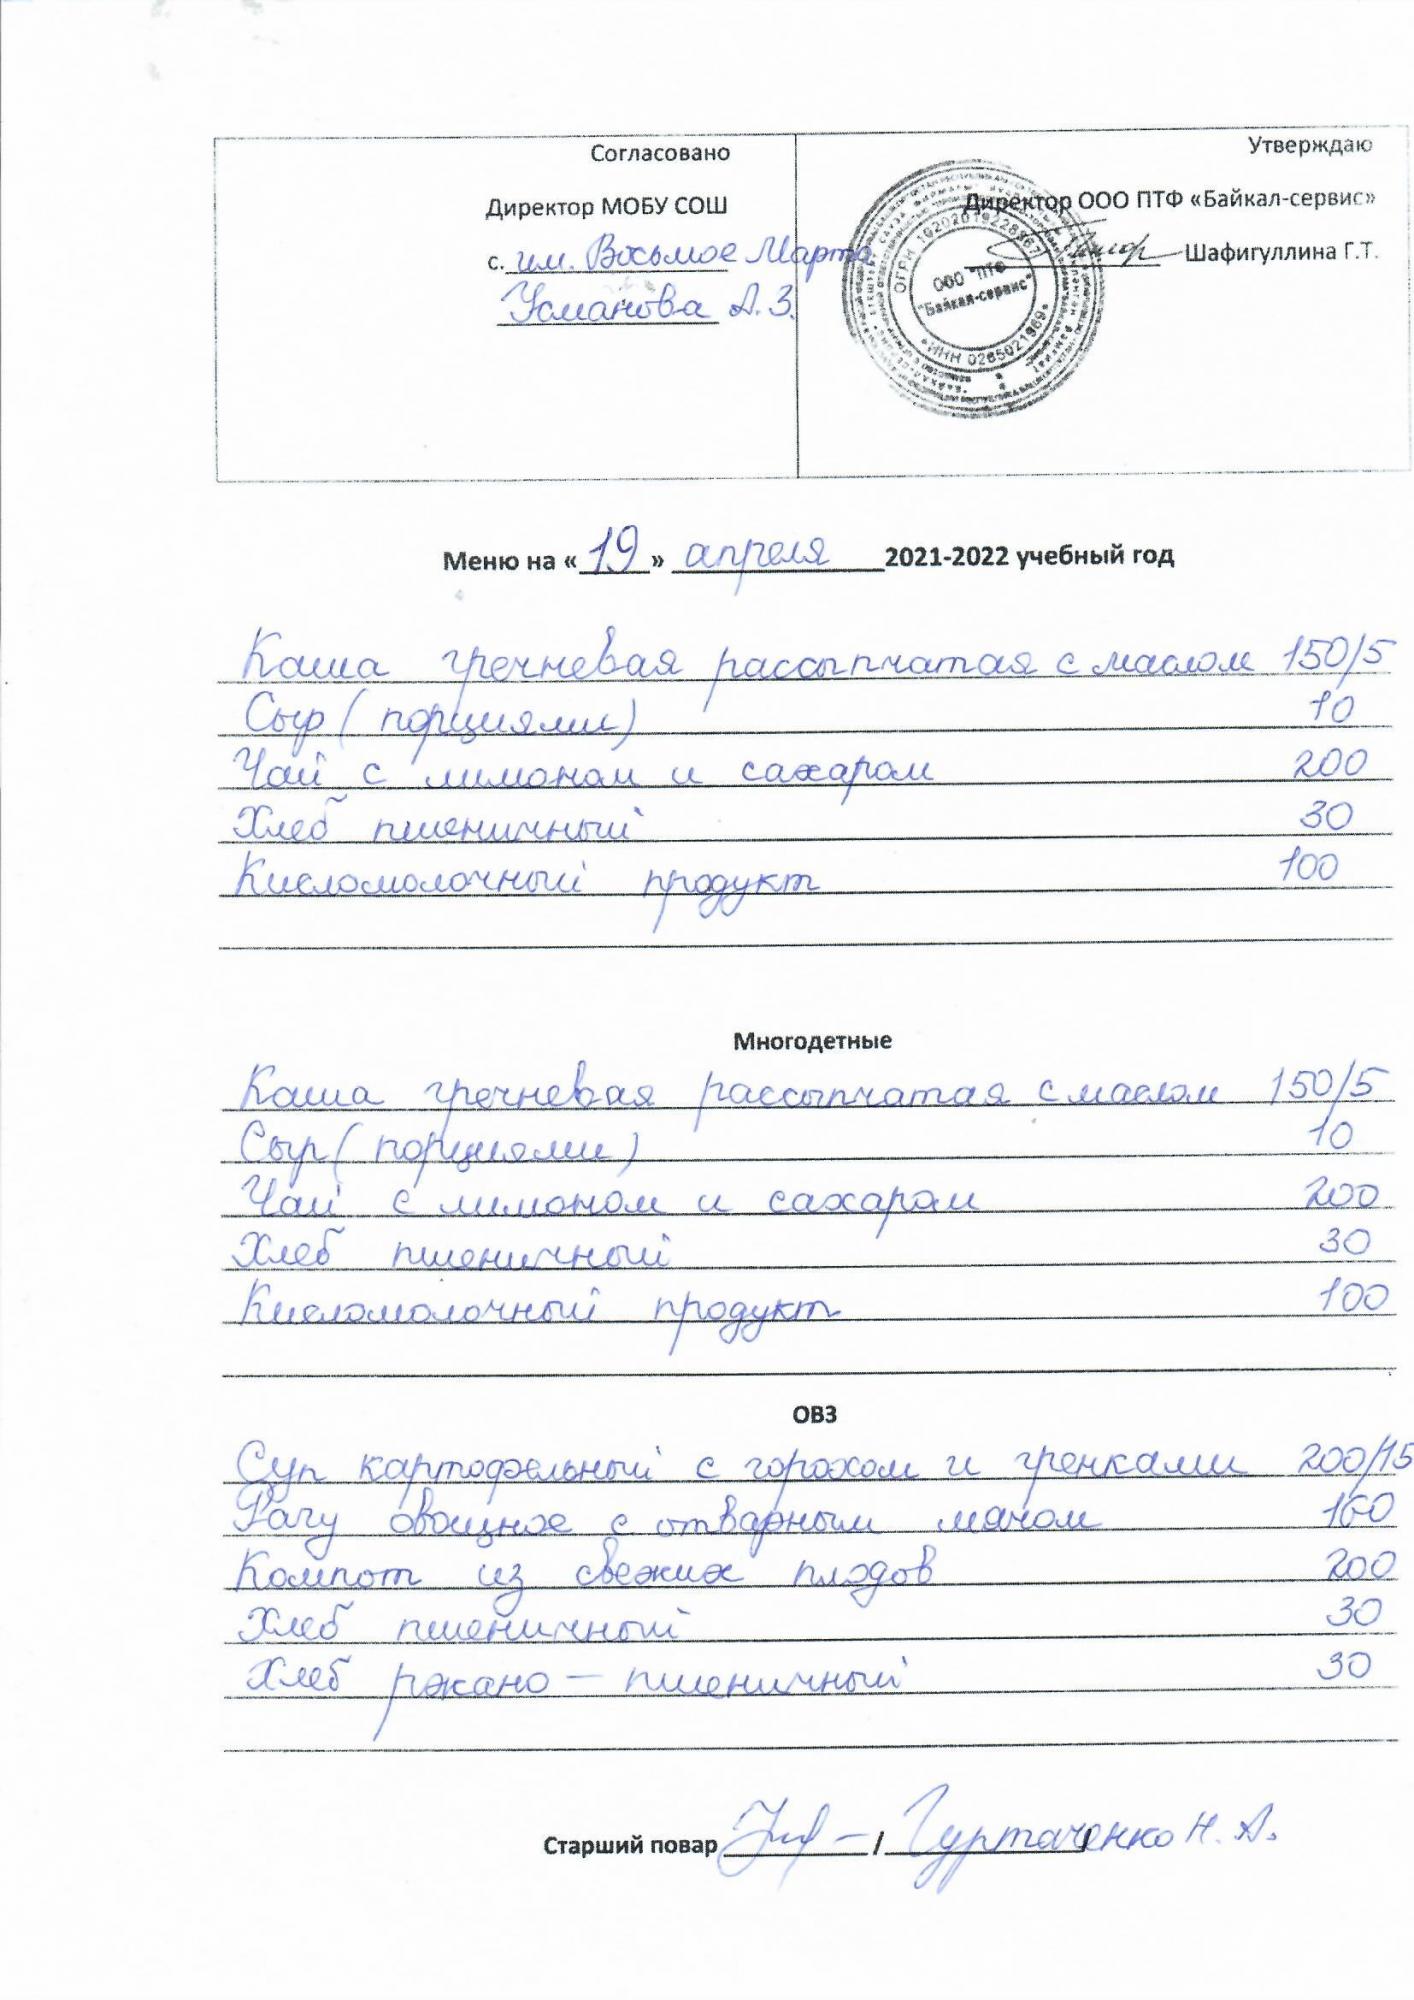 Согласовано
Директор МОБУ СОШ
с. им. Восьмое Марта
Усманова А.З.
Утверждаю
Директор ООО ПТФ «Байкал-сервис»
Шафигуллина Г.Т.
ООО "ПТФ
"Байкал-сервис"
Меню на « 19 » апреля 2021-2022 учебный год
Каша гречневая рассыпчатая с маслом 150/5
Сыр (порциями) 10
Чай с лимоном и сахаром 200
Хлеб пшеничный 30
Кисломолочный продукт 100
Многодетные
Каша гречневая рассыпчатая с маслом 150/5
Сыр (порциями) 10
Чай с лимоном и сахаром 200
Хлеб пшеничный 30
Кисломолочный продукт 100
ОВЗ
Суп картофельный с горохом и гренками 200/15
Рагу овощное с отварным мясом 160
Компот из свежих плодов 200
Хлеб пшеничный 30
Хлеб ржано - пшеничный 30
Старший повар / Гуртаченко Н. А.